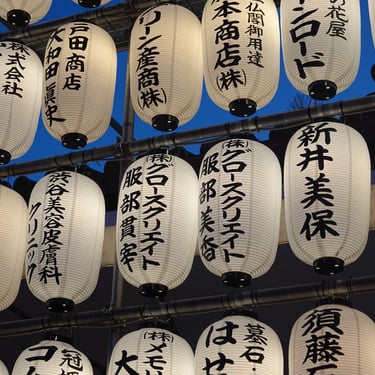 の花屋
ーンロード
仏閣御用達
本商店
(株)
リーン産商
(株)
戸田商店
大和田眞史
株式会社
新井美保
(株)グロースクリエイト
服部美香
(株)グロースクリエイト
服部貫宰
渋谷美容皮膚科
クリニック
須藤
墓石
はせ
(株)メモリ
大
冠
コ